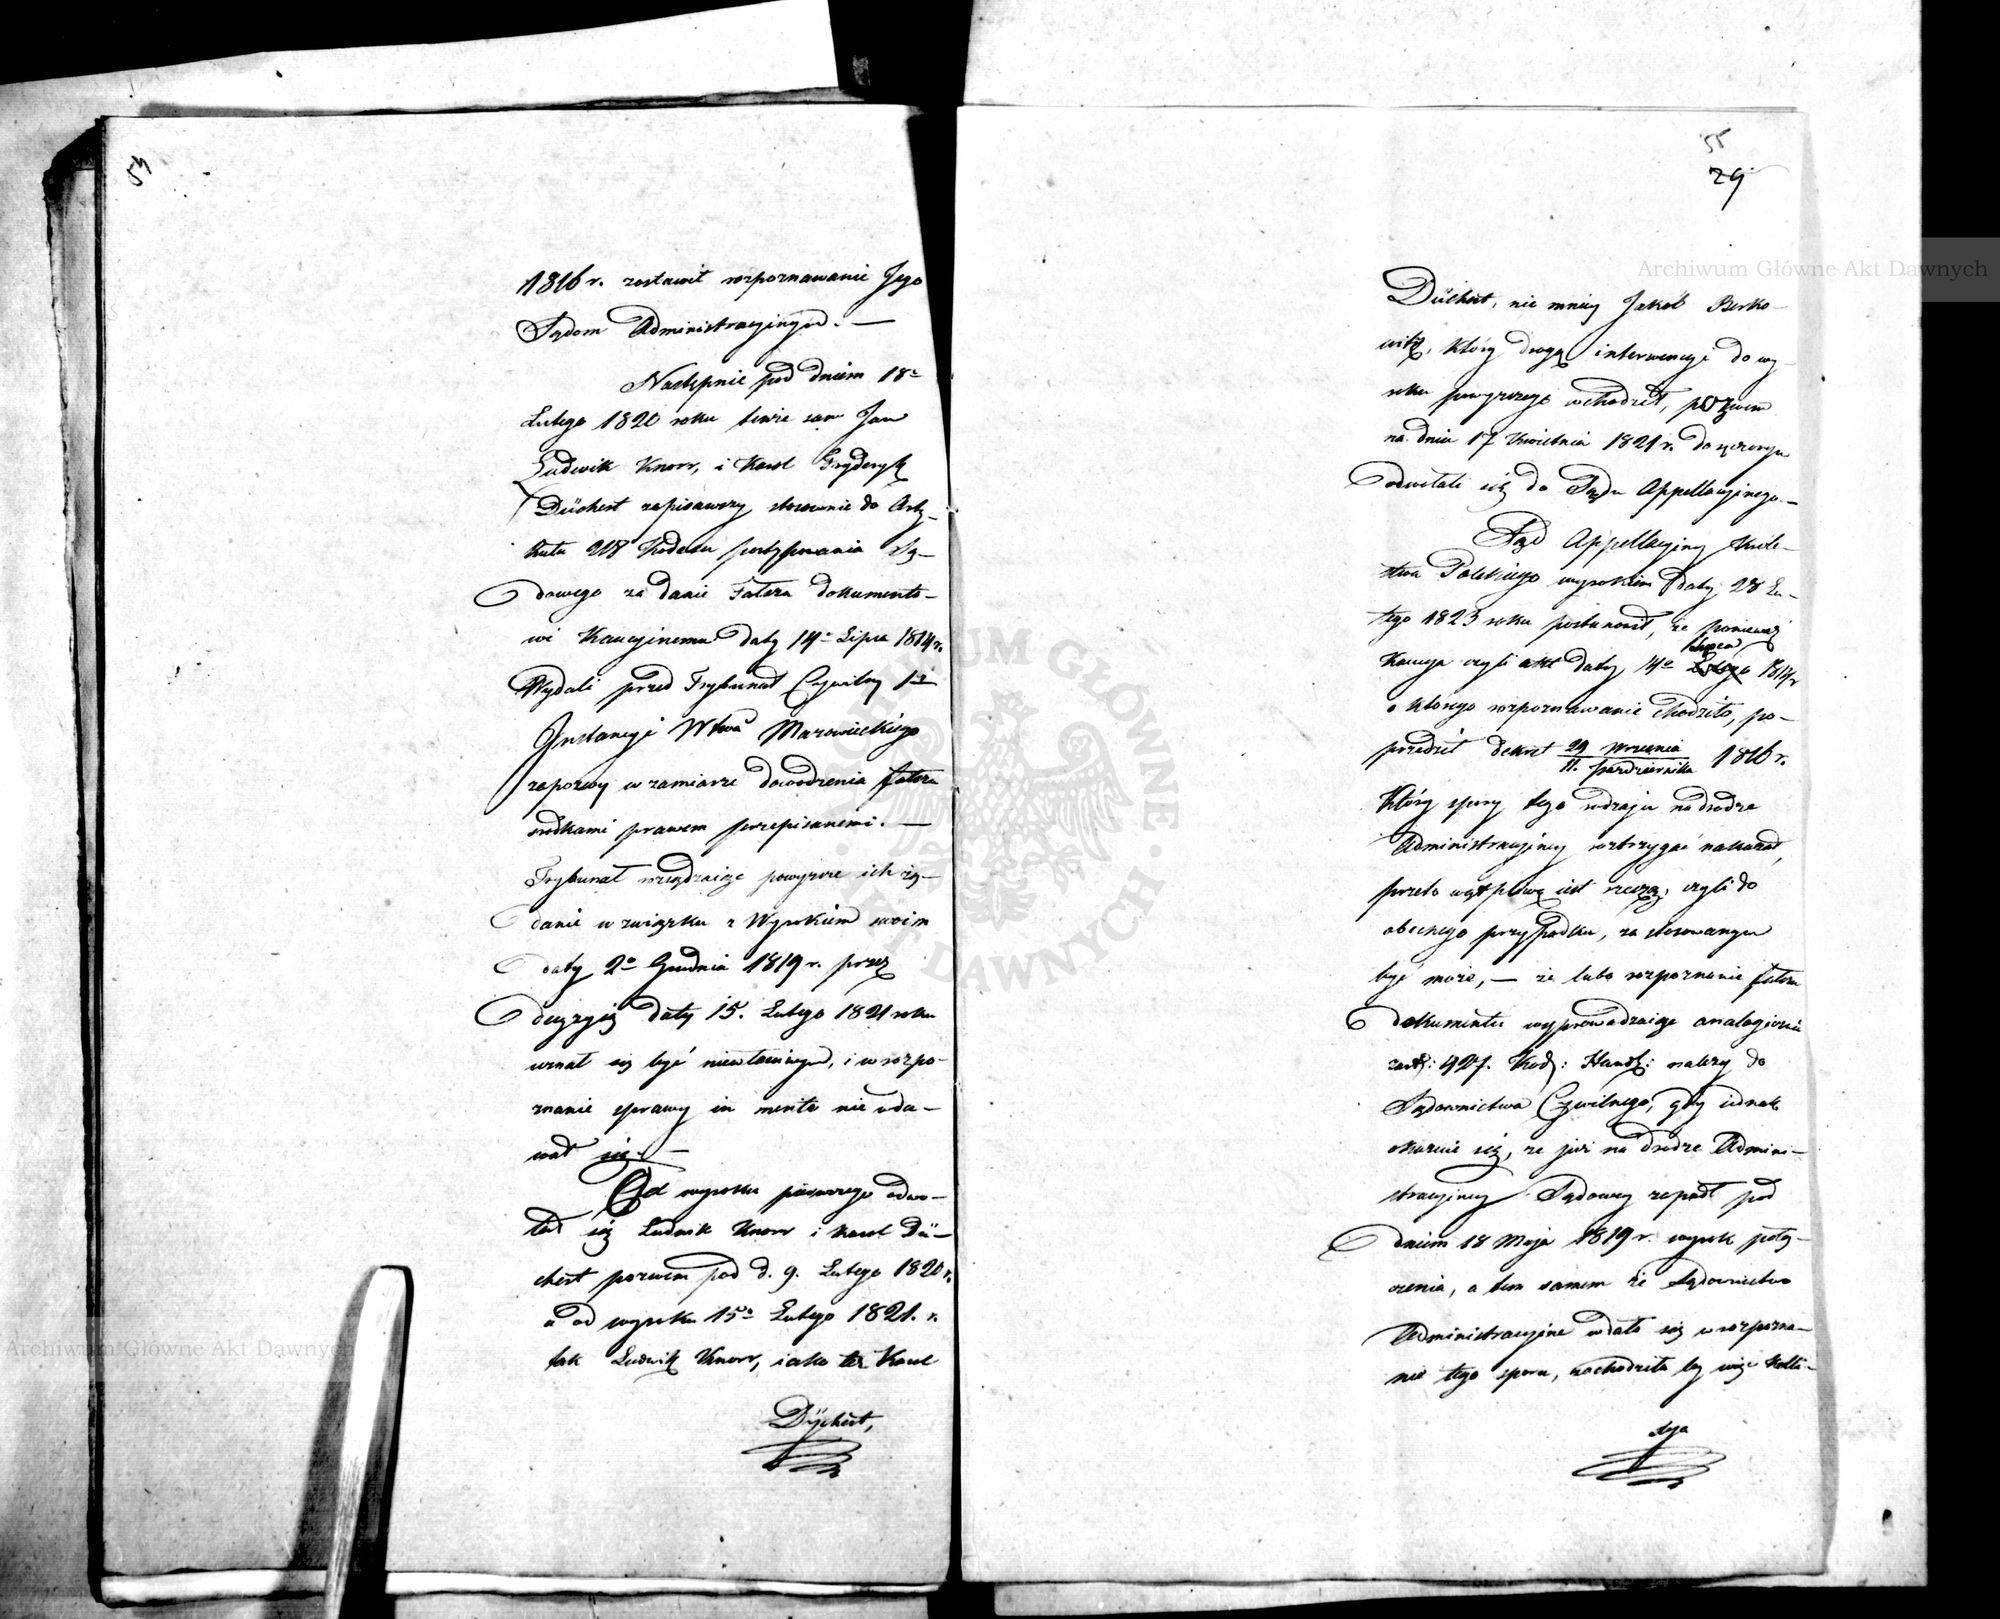 54
1816 r. zostawił rozpoznawanie Jego
Sądom Administracyinym. —
Następnie pod dniem 18º
Lutego 1820 roku tenże sam Jan
Ludwik Knorr, i Karol Fryderyk
Dückert zapisawszy stosownie do Arty-
kułu 218 Kodexu postępowania Są-
dowego zadanie Fałszu dokumento-
wi Kaucyinemu daty 14º Lipca 1814 r.
Wydali przed Trybunał Cywilny 1éj
Instancyi Wtwa Mazowieckiego
zapozwy w zamiarze dowodzenia fałszu
srodkami prawem przepisanemi. —
Trybunał rozsądzaiąc powyższe ich żą-
danie w związku z Wyrokiem swoim
daty 2º Grudnia 1819 r. przez
decyzyią daty 15. Lutego 1821 roku
uznał się być niewłaściwym, i w rozpo-
znanie sprawy in merito nie wda-
wał się. —
Od wyroku pierwszego odwo-
łał się Ludwik Knorr i Karol Dü-
ckert pozwem pod d. 9. Lutego 1820 r.
a od wyroku 15º Lutego 1821. r.
tak Ludwik Knorr, iako też Karol
Dückert,
55
29
Dückert, nie mniey Jakób Berko-
witz, który drogą interwencyi do wy-
roku powyższego wchodził, pozwem
na dniu 17 Kwietnia 1821 r. doręczonym
odwołali się do Sądu Appellacyinego. —
Sąd Appellacyiny Króle-
stwa Polskiego wyrokiem daty 28 Lu-
tego 1823 roku postanowił, że ponieważ
Lipca
Kaucya czyli akt daty 14º Lutego 1814 r
o którego rozpoznawanie chodziło, po-
przedził dekret 29 Września 1816 r.
11. Października
Który spory tego rodzaju na drodze
Administracyiney roztrzygać nakazał,
przeto wątpliwą iest rzeczą, czyli do
obecnego przypadku, zastosowanym
być może, — że lubo rozpoznanie fałszu
dokumentu wyprowadzaiąc analogicznie
z art: 427. Kod: Handl: należy do
Sądownictwa Cywilnego, gdy iednak
okazuie się, że już na drodze Admini-
stracyiney Sądowey zapadł pod
dniem 18 Maja 1819 r. wyrok potę-
pienia, a tem samem że Sądownictwo
Administracyine wdało się w rozpozna-
nie tego sporu, zachodziła by więc kolli-
zya
Archiwum Główne Akt Dawnych
Archiwum Główne Akt Dawnych
ARCHIWUM GŁÓWNE AKT DAWNYCH